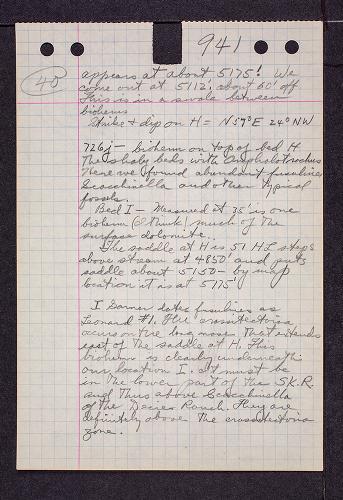 941
40
appears at about 5175! We
come out at 5112, about 60' off
This is in a swale between
bioherms
Strike & dip on H = N57°E 24°NW
726j - bioherm on top of bed H
The shaly beds with Amphalotrochus
Here we found abundant fusulines
Scacchinella and other typical
fossils.
Bed I - Measured at 35' is one
bioherm (I think) much of the
surface dolomite.
The saddle at H is 51 HL steps
above stream at 4850' and puts
saddle about 5150 - by map
location it is at 5175'
I Garner dates fusulines as
Leonard #1. The crassitectoria
occurs on the long nose that extends
east of the saddle at H. This
bioherm is clearly underneath
our location I. It must be
in the lower part of the S.K.R.
and thus above Scacchinella
of the Decie Ranch. They are
definitely above the crassitectoria
zone.